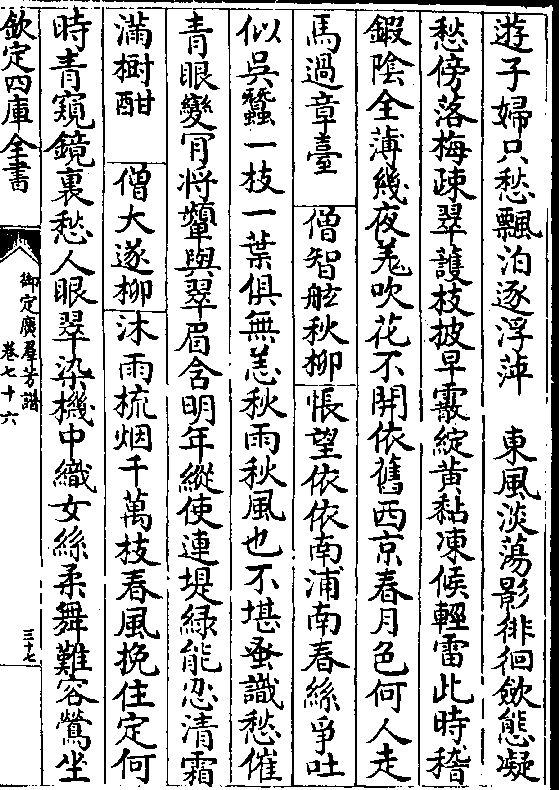 遊子婦只愁飄泊逐浮萍　東風淡蕩影徘徊歛態凝
愁傍落梅疎翠護枝披早霰綻黄黏凍候輕雷此時稽
鍜陰全薄幾夜羌吹花不開依舊西京春月色何人走
馬過章臺　僧智舷秋柳　悵望依依南浦南春絲爭吐
似吳蠶一枝一葉俱無恙秋雨秋風也不堪蚤識愁催
青眼變肎将顰與翠眉含明年縱使連堤緑能忍清霜
滿樹酣　僧大遂柳　沐雨梳烟千萬枝春風挽住定何
時青窺鏡裏愁人眼翠染機中織女絲柔舞難容鶯坐
欽定四庫全書　御定廣羣芳譜 卷七十六　三十七